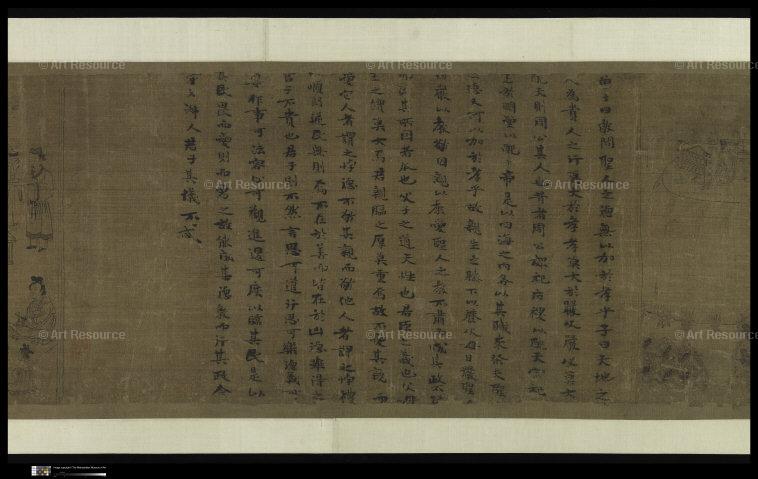 曾子曰敢問聖人之德無以加於孝乎子曰天地之
人為貴人之行莫大於孝孝莫大於嚴父嚴父莫大
配天則周公其人也昔者周公郊祀后稷以配天宗祀
王於明堂以配上帝是以四海之內各以其職來祭夫聖
之德又何以加於孝乎故親生之膝下以養父母日嚴聖人
因嚴以教敬因親以教愛聖人之教不肅而成其政不
而治其所因者本也父子之道天性也君臣之義也父母
生之續莫大焉君親臨之厚莫重焉故不愛其親而
愛他人者謂之悖德不敬其親而敬他人者謂之悖禮
以順則逆民無則焉不在於善而皆在於凶德雖得之
君子不貴也君子則不然言思可道行思可樂德義可
尊作事可法容止可觀進退可度以臨其民是以
其民畏而愛則而象之故能成其德教而行其政令
云淑人君子其儀不忒
© Art Resource
© Art Resource
© Art Resource
© Art Resource
© Art Resource
© Art Resource
© Art Resource
© Art Resource